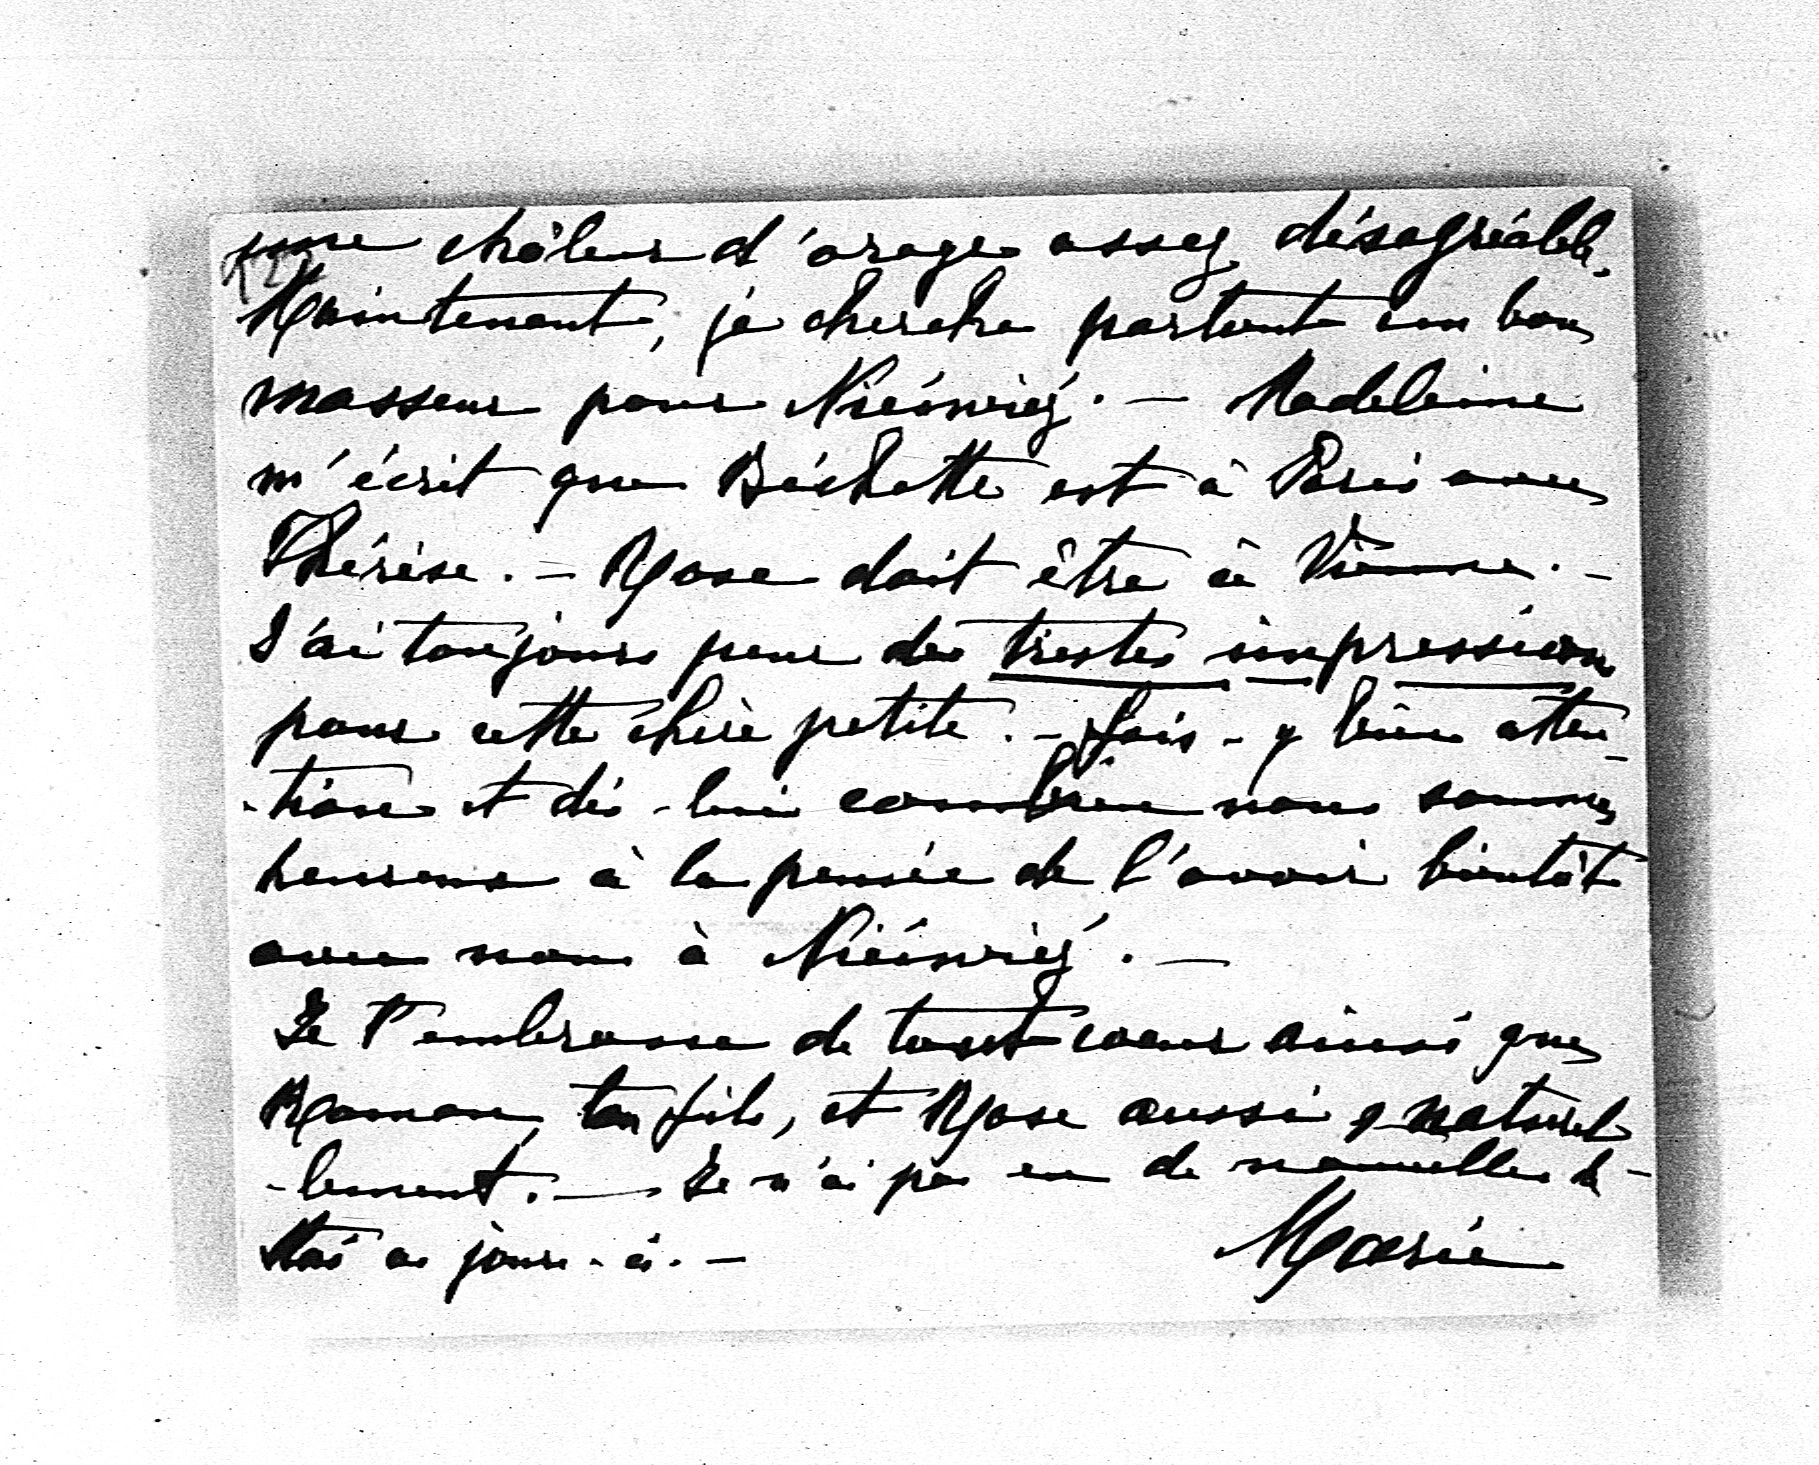 une châleur d'orage assez désagréable.
Maintenant, je cherche partout un bon
masseur pour Niéświéź. — Madeleine
m'écrit que Béchette est à Paris avec
Thérèse. — Rose doit être à Vienne. —
J'ai toujours peur des tristes impressions
pour cette chère petite. — Fais-y bien atten-
-tion et dis-lui combien nous sommes
heureux à la pensée de l'avoir bientôt
avec nous à Niéświéź. —
Je t'embrasse de tout cœur ainsi que
Maman, ton fils, et Rose aussi, naturel-
-lement. — Je n'ai pas eu de nouvelles de
toi ces jours-ci. — Marie